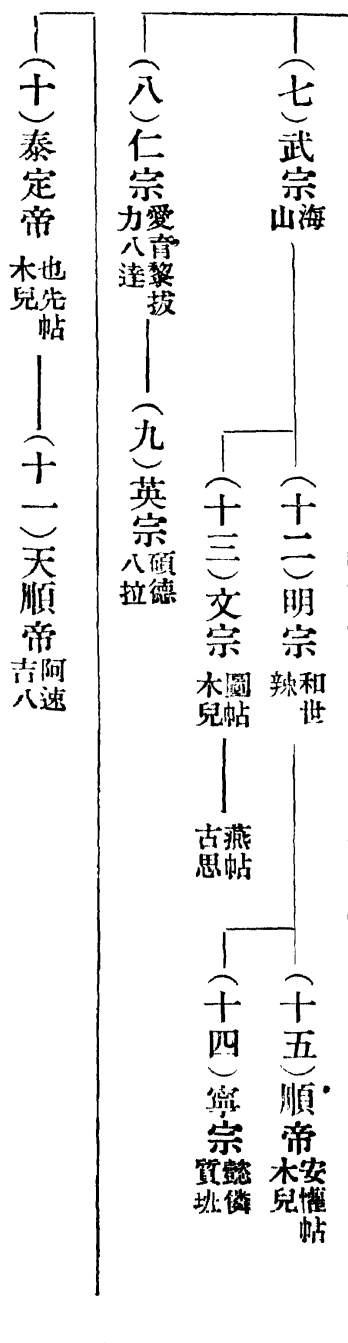 （七）武宗 海山
（十二）明宗 和世㻋
（十五）順帝 安懽帖木兒
（十四）寧宗 懿憐質班
（十三）文宗 圖帖木兒
燕帖古思
（八）仁宗 愛育黎拔力八達
（九）英宗 碩德八拉
（十）泰定帝 也先帖木兒
（十一）天順帝 阿速吉八